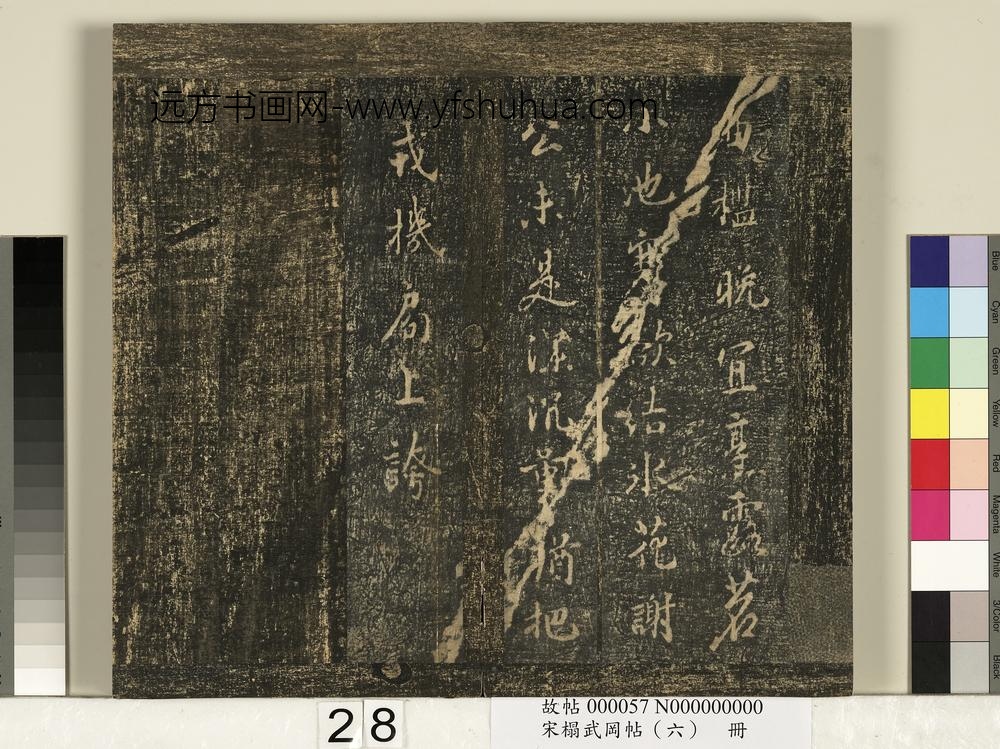 远方书画网-www.yfshuhua.com
西檻晚宜烹露茗
小池寒欲結冰花謝
公未是深沉量猶把
戎機局上誇
28
故帖 000057 N000000000
宋搨武岡帖（六） 冊
Blue
Cyan
Green
Yellow
Red
Magenta
White
3/Color
Black